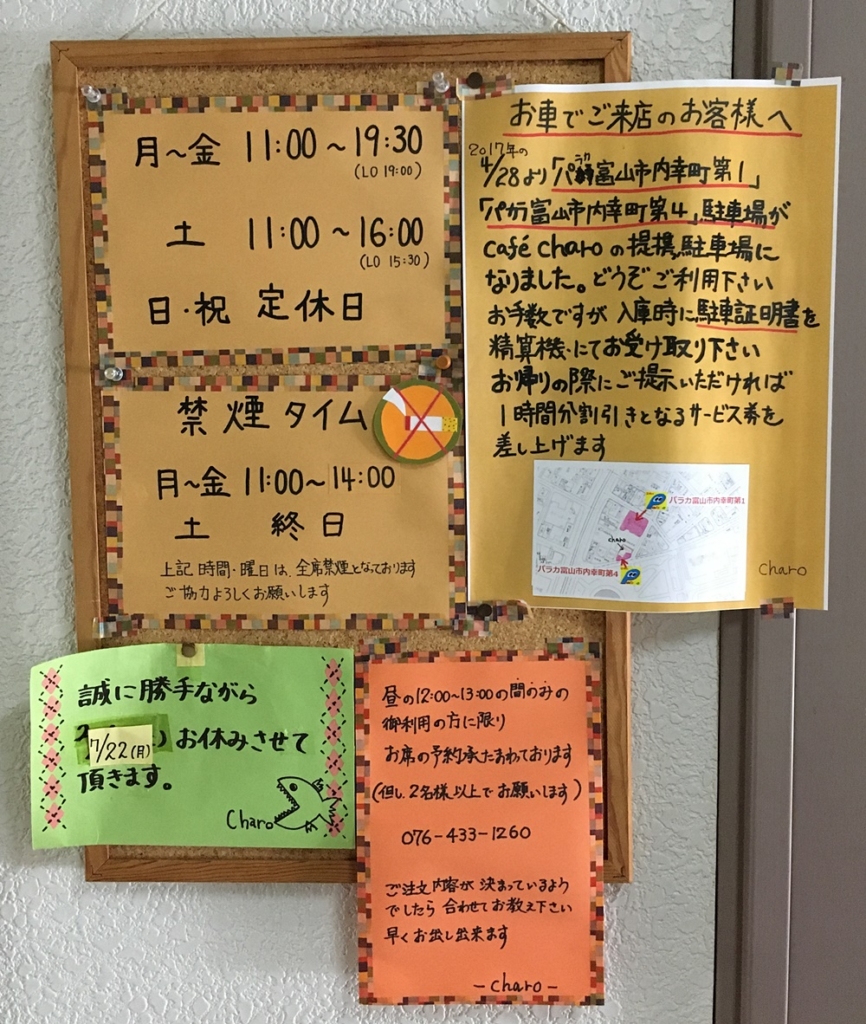 月～金 11:00～19:30
(LO 19:00)
土 11:00～16:00
(LO 15:30)
日・祝 定休日
禁煙タイム
月～金 11:00～14:00
土 終日
上記時間・曜日は、全席禁煙となております
ご協力よろしくお願いします
お車でご来店のお客様へ
2017年の
4/28より「パラカ富山市内幸町第1」
「パラカ富山市内幸町第4」駐車場が
café charoの提携駐車場に
なりました。どうぞご利用下さい
お手数ですが 入庫時に駐車証明書を
精算機にてお受け取り下さい
お帰りの際にご提示いただければ
1時間分割引きとなるサービス券を
差し上げます
パラカ富山市内幸町第1
charo
パラカ富山市内幸町第4
charo
誠に勝手ながら
7/22(月) お休みさせて
頂きます。
Charo
昼の12:00～13:00の間のみの
御利用の方に限り
お席の予約承たまわております
(但し、2名様以上でお願いします)
076-433-1260
ご注文内容が 決まっているよう
でしたら 合わせてお教え下さい
早くお出し出来ます
-charo-